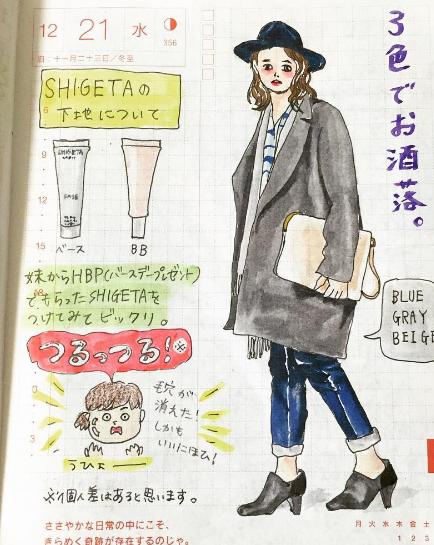 12 21 水
356
旧：十一月二十三日／冬至
SHIGETAの
下地について
6
9
12
15
SHIGETA
BASE
ベース
BB
妹からHBP(バースデープレゼント)
でもらったSHIGETAを
つけてみてビックリ。
つるっつる!※
0
毛穴が
消えた!
しかも
いいにほひ!
3
うひょー
※個人差はあると思います。
ささやかな日常の中にこそ、
きらめく奇跡が存在するのじゃ。
3色でお洒落。
BLUE
GRAY
BEIGE
月 火 水 木 金 土
1 2 3